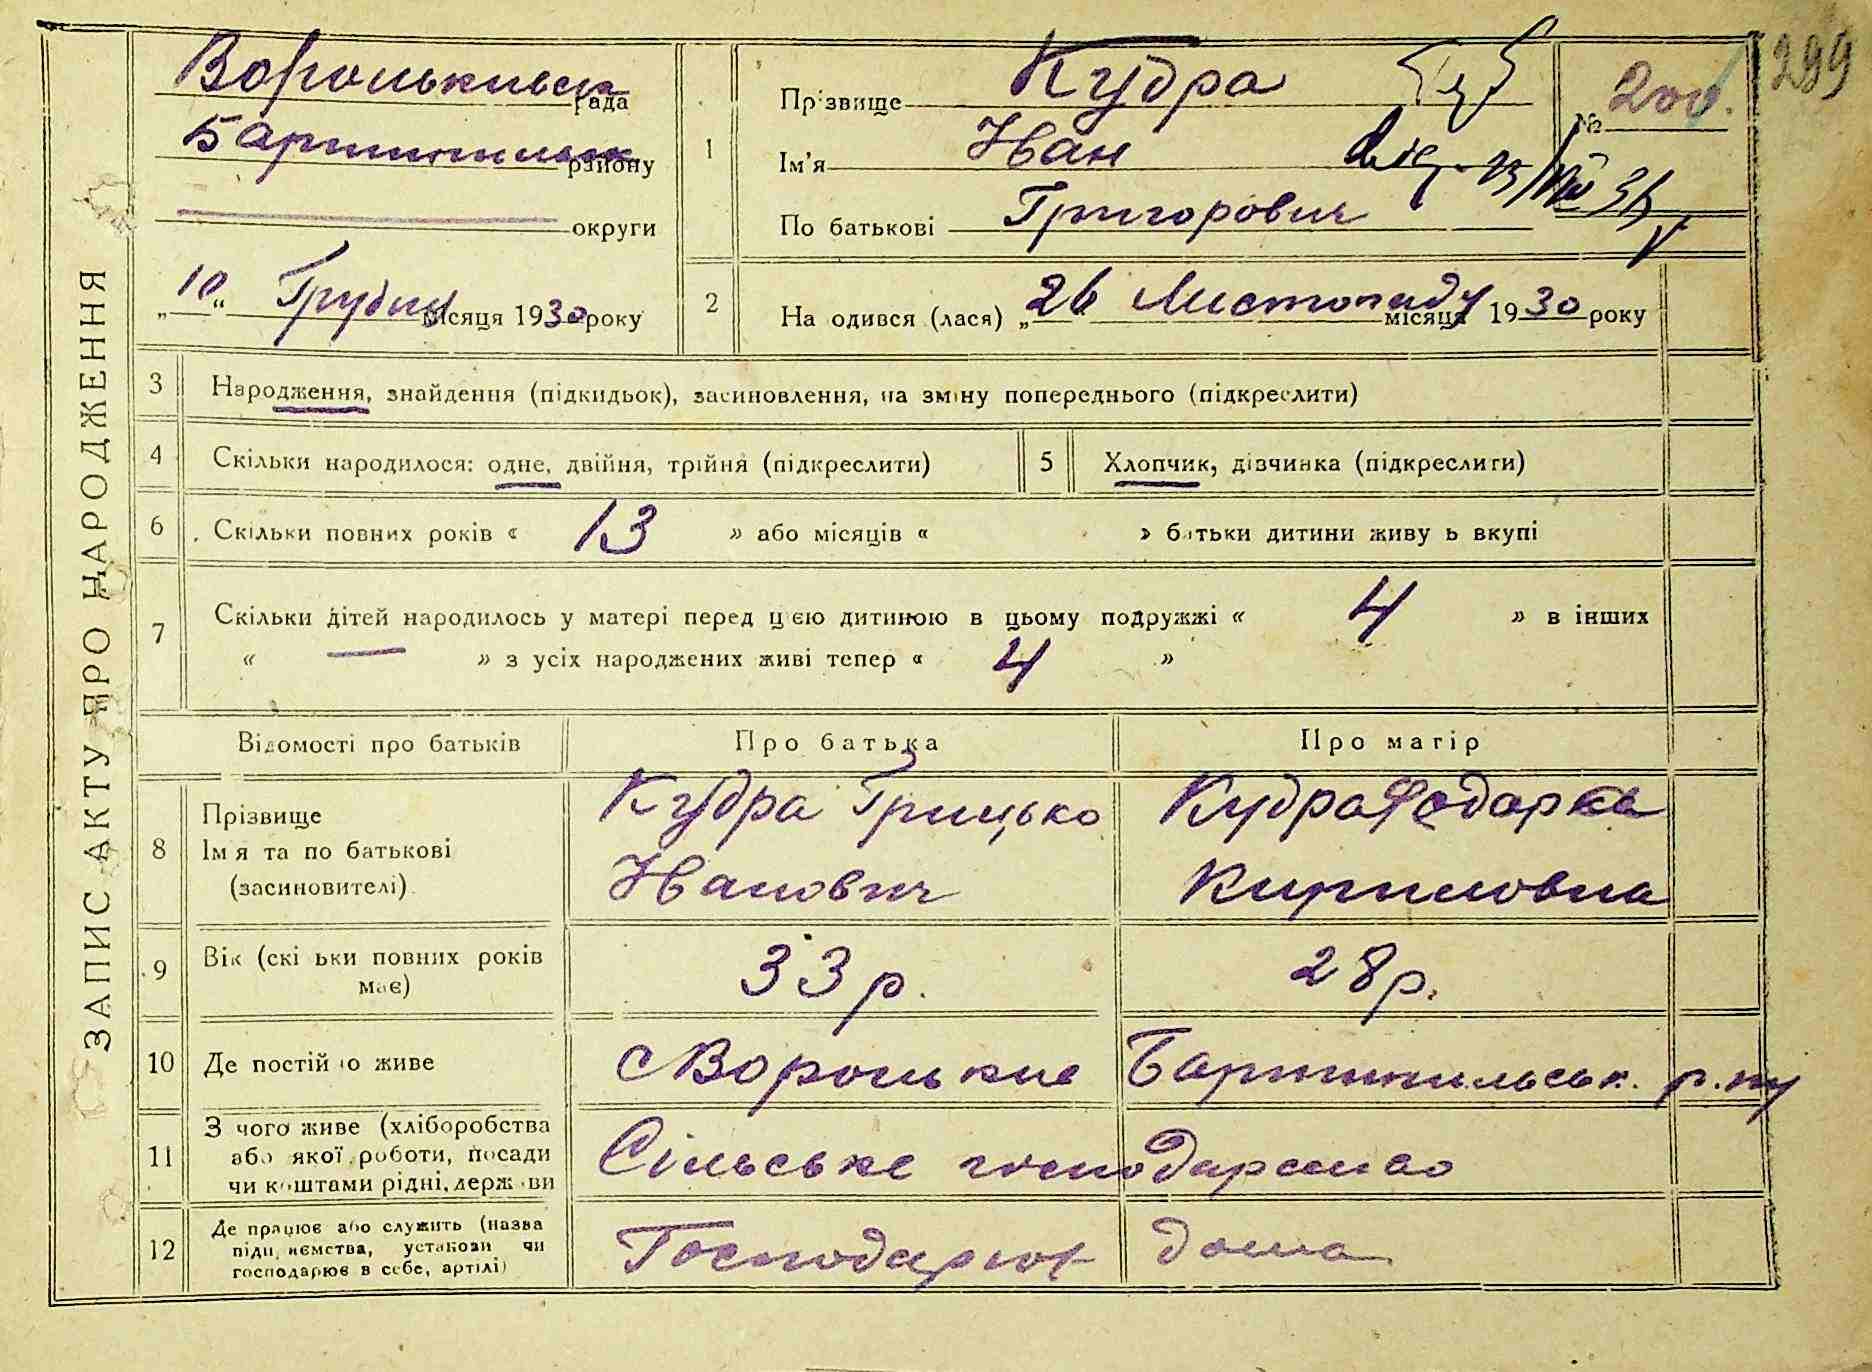 299
ЗАПИС АКТУ ПРО НАРОДЖЕННЯ
Воронькивськ рада
району
округи
„10“ Грудня місяця 1930 року
1
Прізвище Кудра
Ім'я Іван
По батькові Григорович
№ 200.
2
На одився (лася) „26 Листопаду місяця 1930 року
3 Народження, знайдення (підкидьок), засиновлення, на зміну попереднього (підкреслити)
4 Скільки народилося: одне, двійня, трійня (підкреслити) 5 Хлопчик, дівчинка (підкреслити)
6 Скільки повних років « 13 » або місяців « » батьки дитини живу ь вкупі
7 Скільки дітей народилось у матері перед цією дитиною в цьому подружжі « 4 » в інших
« — » з усіх народжених живі тепер « 4 »
Відомості про батьків Про батька Про матір
8 Прізвище
Ім я та по батькові
(засиновителі)
Кудра Грицько
Иванович
Кудра Федорка
Кириловна
9 Вік (скі ьки повних років має) 33 р. 28 р.
10 Де постій о живе с Воронькив Бориспильськ. р-ну
11 З чого живе (хліборобства
або якої роботи, посади
чи коштами рідні, держ ви
Сільське господарство
12 Де працює або служить (назва
підп иємства, установи чи
господарює в себе, артілі)
Господарют дома